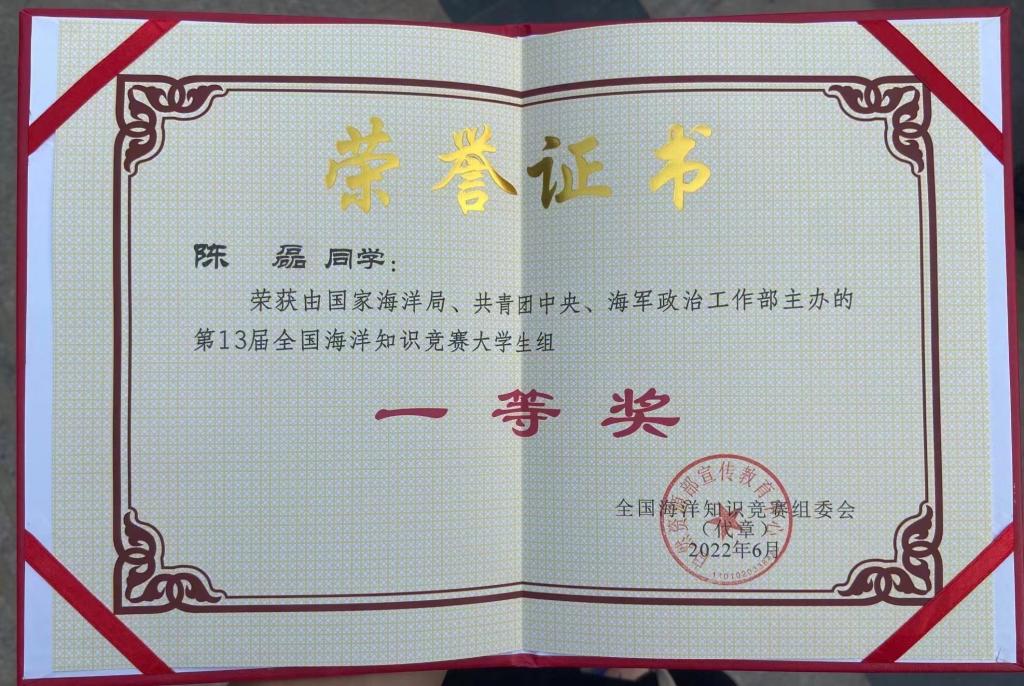 荣誉证书
陈 磊 同学：
荣获由国家海洋局、共青团中央、海军政治工作部主办的
第13届全国海洋知识竞赛大学生组
一等奖
自然资源部宣传教育中心
全国海洋知识竞赛组委会
（代章）
2022年6月